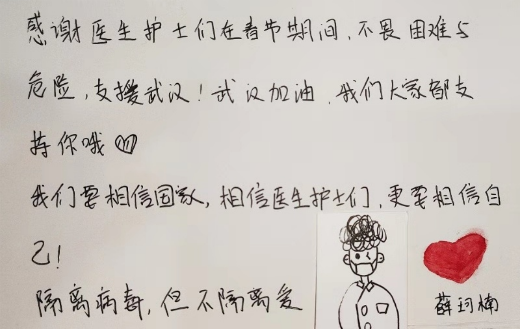 感谢医生护士们在春节期间,不畏困难与
危险,支援武汉!武汉加油,我们大家都支
持你哦
我们要相信国家,相信医生护士们,更要相信自
己!
隔离病毒,但不隔离爱
薛珂楠